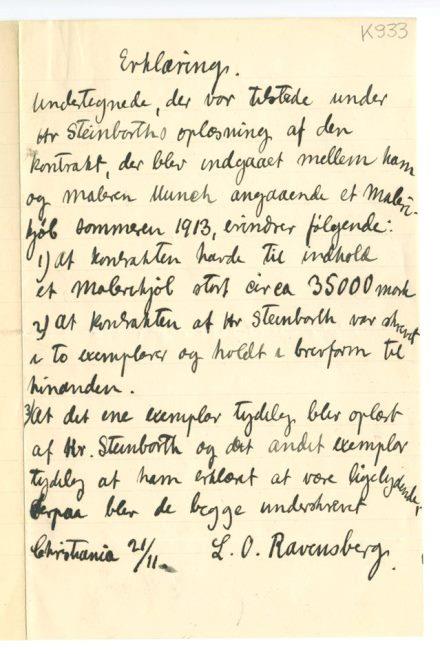 K933
Erklæring.
Undertegnede, der var tilstede under
Hr Steinborths oplæsning af den
kontrakt, der blev indgaaet mellem ham
og maleren Munch angaaende et Maleri-
kjöb sommeren 1913, erindrer følgende:
1) at kontrakten havde til indhold
et Malerikjöb stort circa 35000 mark
2) at kontrakten af Hr Steinborth var skrevet
i to exemplarer og holdt i brevform til
hinanden.
3) at det ene exemplar tydelig blev oplæst
af Hr. Steinborth og det andet exemplar
tydelig af ham erklæret at være ligelydende,
derpaa blev de begge underskrevet
Christiania 21/11. L. O. Ravensberg.